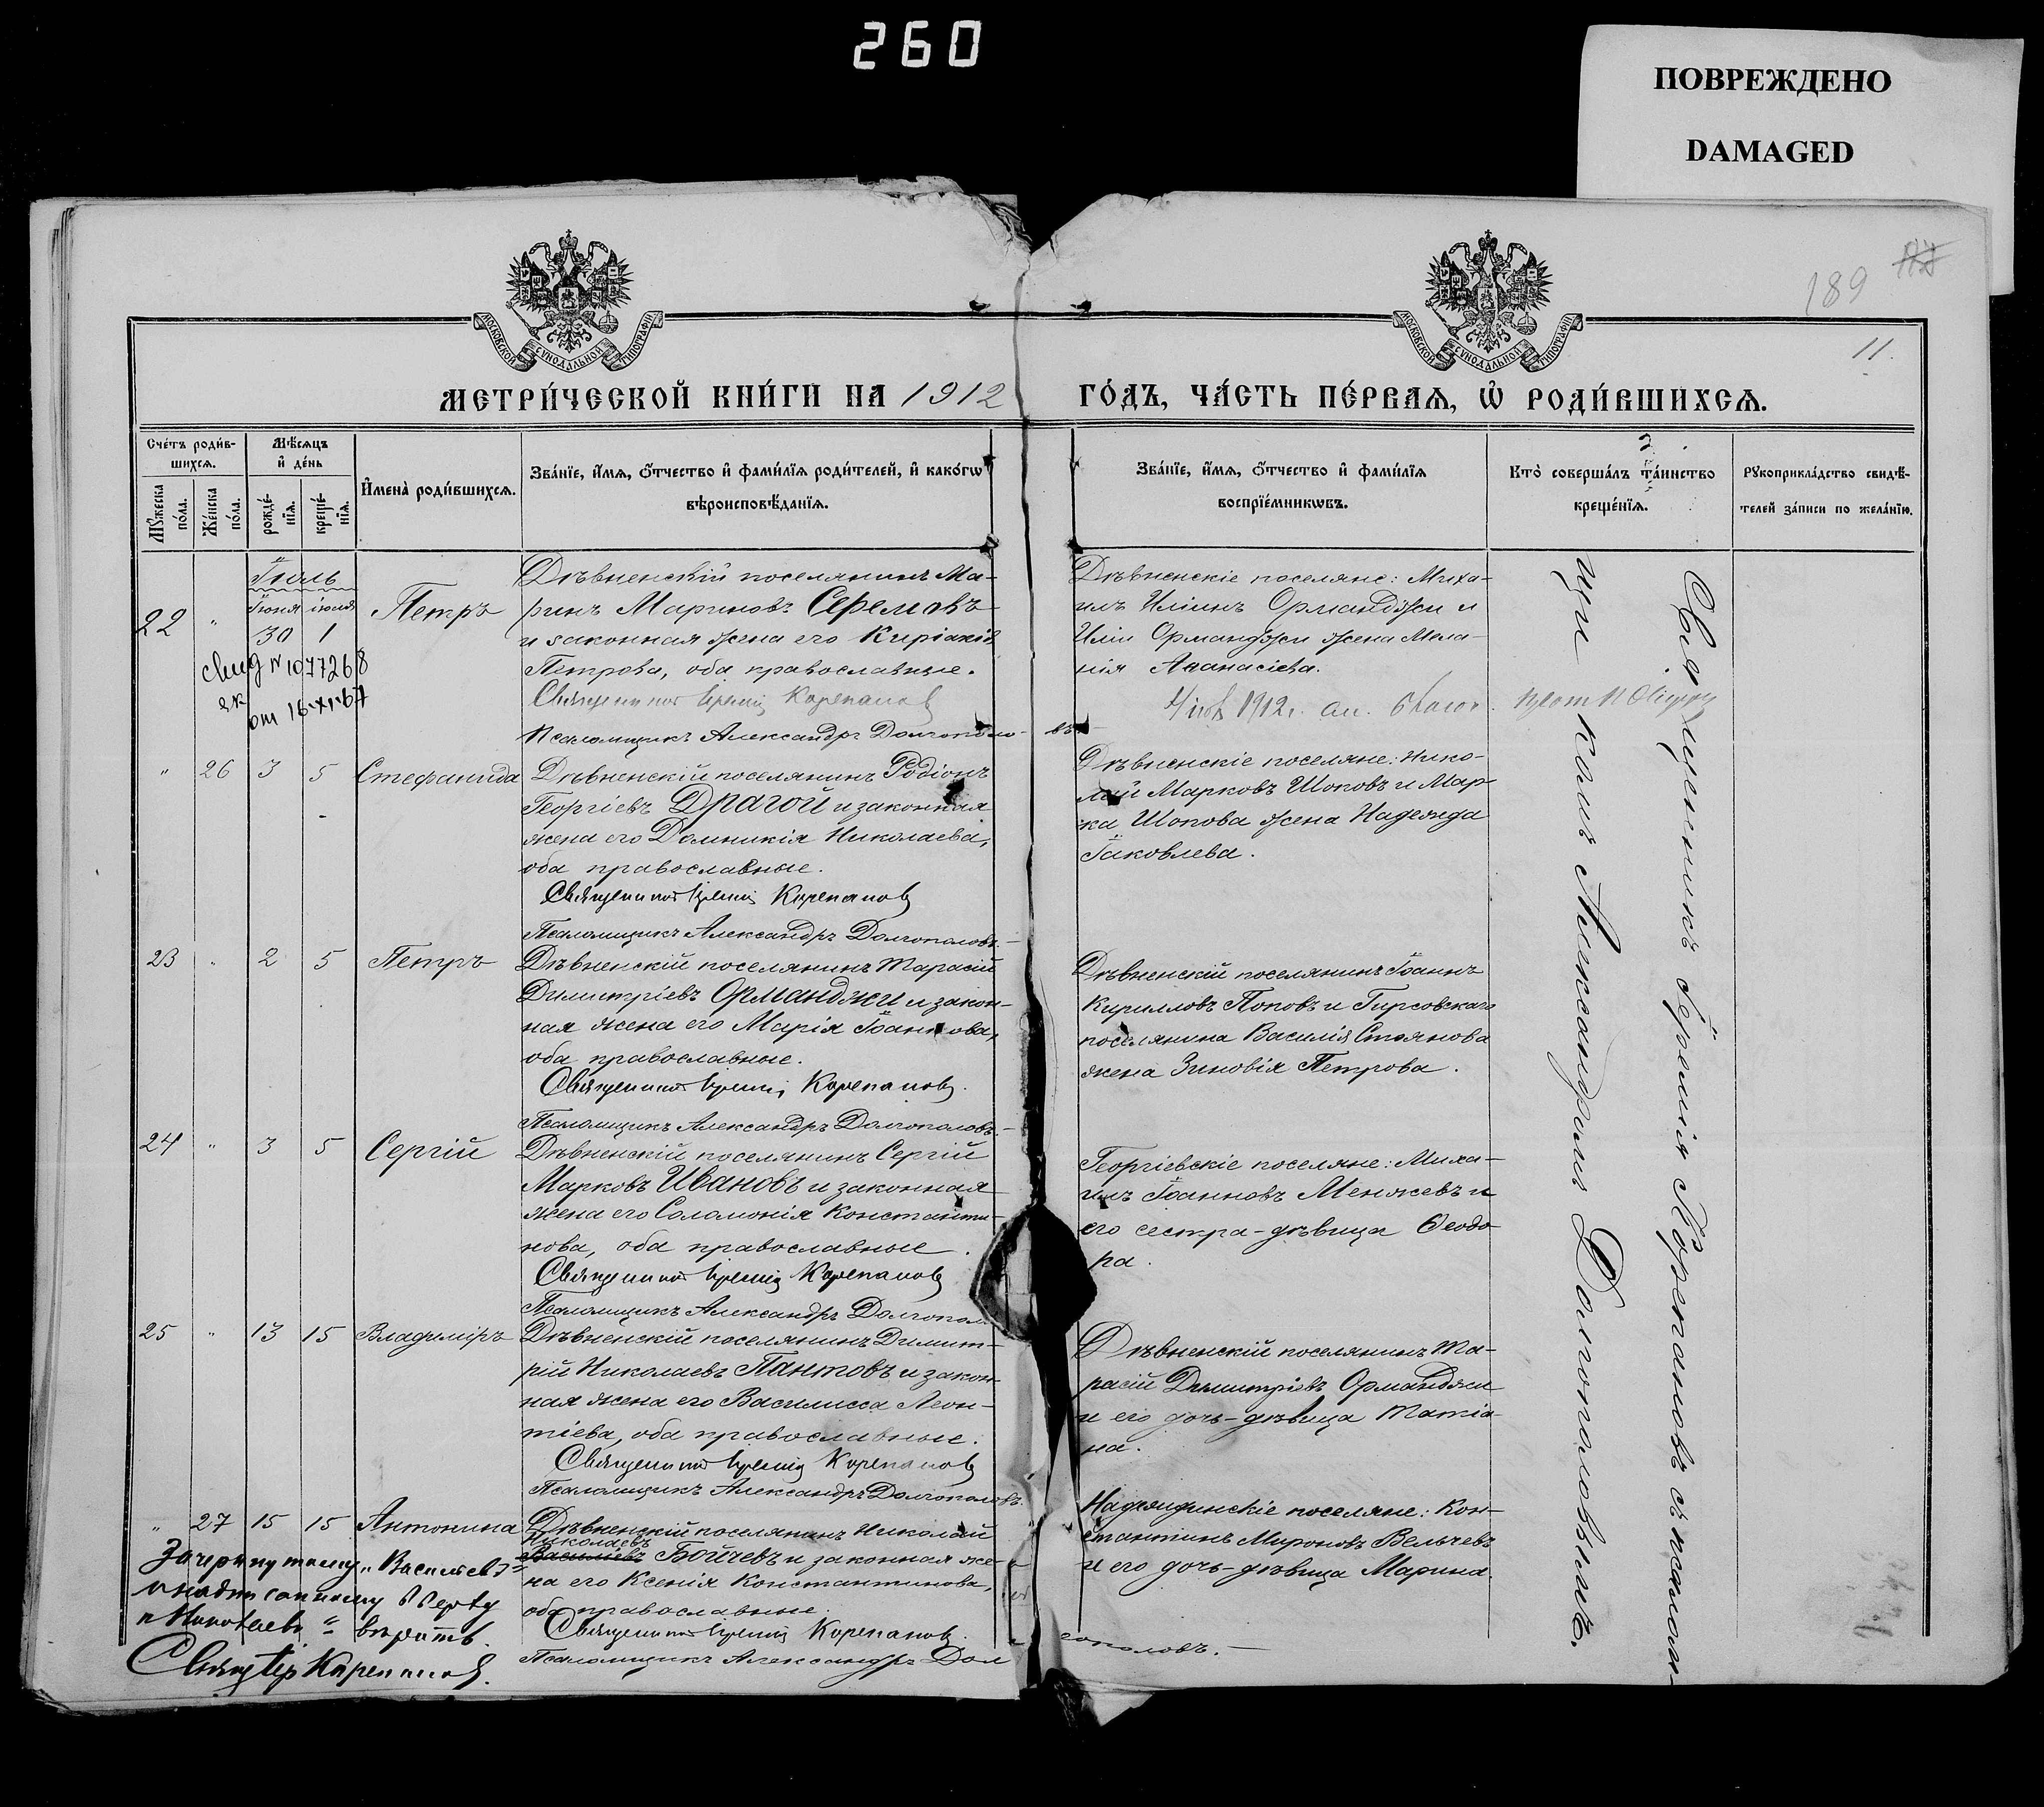 260
ПОВРЕЖДЕНО
DAMAGED
189
11.
МОСКОВСКОЙ СѴНОДАЛЬНОЙ ТИПОГРАФІИ
МОСКОВСКОЙ СѴНОДАЛЬНОЙ ТИПОГРАФІИ
МЕТРИ́ЧЕСКОЙ КНИ́ГИ НА 1912 ГО́ДЪ, ЧА́СТЬ ПЕ́РВАЯ, Ѡ҆ РОДИ́ВШИХСЯ.
Сче́тъ роди́в-
шихся.
Мѣ́сяцъ
и҆ де́нь
Мꙋ́жеска
по́ла.
Же́нска
по́ла.
рожде́-
нїя.
креще́-
нїя.
И҆мена̀ роди́вшихся.
Зва́нїе, и҆́мя, ѻ҆́тчество и҆ фами́лїя роди́телей, и҆ како́гѡ
вѣроисповѣ́данїя.
Зва́нїе, и҆́мя, ѻ҆́тчество и҆ фами́лїя
воспрїе́мникѡвъ.
Кто̀ соверша́лъ та́инство
креще́нїя.
Рꙋкоприкла́дство свидѣ́-
телей за́писи по жела́нїю.
Іюль
22 " Іюня 30 іюля 1 Петръ
Дѣвненскій поселянинъ Ма-
ринъ Мариновъ Серемовъ
и законная жена его Киріакія
Петрова, оба православные.
Священникъ Іеремія Корепановъ
Псаломщикъ Александръ Долгополовъ
Дѣвненскіе поселяне: Миха-
илъ Иліинъ Орманджи и
Иліи Орманджи жена Мела-
нія Аѳанасіева.
свид N 1077268
от 16-XI-67
" 26 3 5 Стефанида
Дѣвненскій поселянинъ Родіонъ
Георгіевъ Драгой и законная
жена его Домникія Николаева,
оба православные.
Священникъ Іеремія Корепановъ
Псаломщикъ Александръ Долгополовъ.
Дѣвненскіе поселяне: Нико-
лай Марковъ Шоповъ и Мар-
ка Шопова жена Надежда
Іаковлева.
23 " 2 5 Петръ
Дѣвненскій поселянинъ Тарасій
Димитріевъ Орманджи и закон-
ная жена его Марія Іоаннова,
оба православные.
Священникъ Іеремія Корепановъ.
Псаломщикъ Александръ Долгополовъ.
Дѣвненскій поселянинъ Іоаннъ
Кирилловъ Поповъ и Гирсовскаго
поселянина Василія Стоянова
жена Зиновія Петрова.
24 " 3 5 Сергій
Дѣвненскій поселянинъ Сергій
Марковъ Ивановъ и законная
жена его Соломонія Константи-
нова, оба православные.
Священникъ Іеремія Корепановъ
Псаломщикъ Александръ Долгопол
Георгіевскіе поселяне: Миха-
илъ Іоанновъ Менжевъ и
его сестра-дѣвица Ѳеодо-
ра.
25 " 13 15 Владиміръ
Дѣвненскій поселянинъ Димит-
рій Николаевъ Пантовъ и закон-
ная жена его Василисса Леон-
тіева, оба православные.
Священникъ Іеремія Корепановъ
Псаломщикъ Александръ Долгополовъ.
Дѣвненскій поселянинъ Та-
расій Димитріевъ Орманджи
и его дочь-дѣвица Татіа-
на.
" 27 15 15 Антонина
Дѣвненскій поселянинъ Николай
Николаевъ
Василіевъ Бойчевъ и законная же-
на его Ксенія Константинова,
оба православные.
Священникъ Іеремія Корепановъ.
Псаломщикъ Александръ Долгополовъ.
Надеждинскіе поселяне: Кон-
стантинъ Мироновъ Вельчевъ
и его дочь-дѣвица Марина.
Зачеркнутому "Василіевъ"
и надписанному вверху
"Николаевъ" вѣрить.
Свящ Іер Корепановъ.
Священникъ Іеремія Корепановъ съ псалом-
щикомъ Александромъ Долгополовымъ.